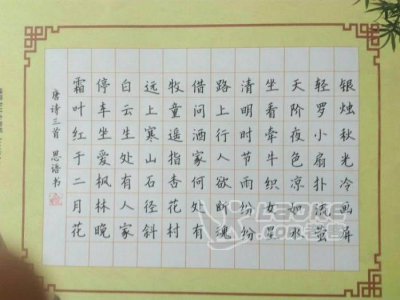 银烛秋光冷画屏
轻罗小扇扑流萤
天阶夜色凉如水
坐看牵牛织女星
清明时节雨纷纷
路上行人欲断魂
借问酒家何处有
牧童遥指杏花村
远上寒山石径斜
白云生处有人家
停车坐爱枫林晚
霜叶红于二月花
唐诗三首 思语书